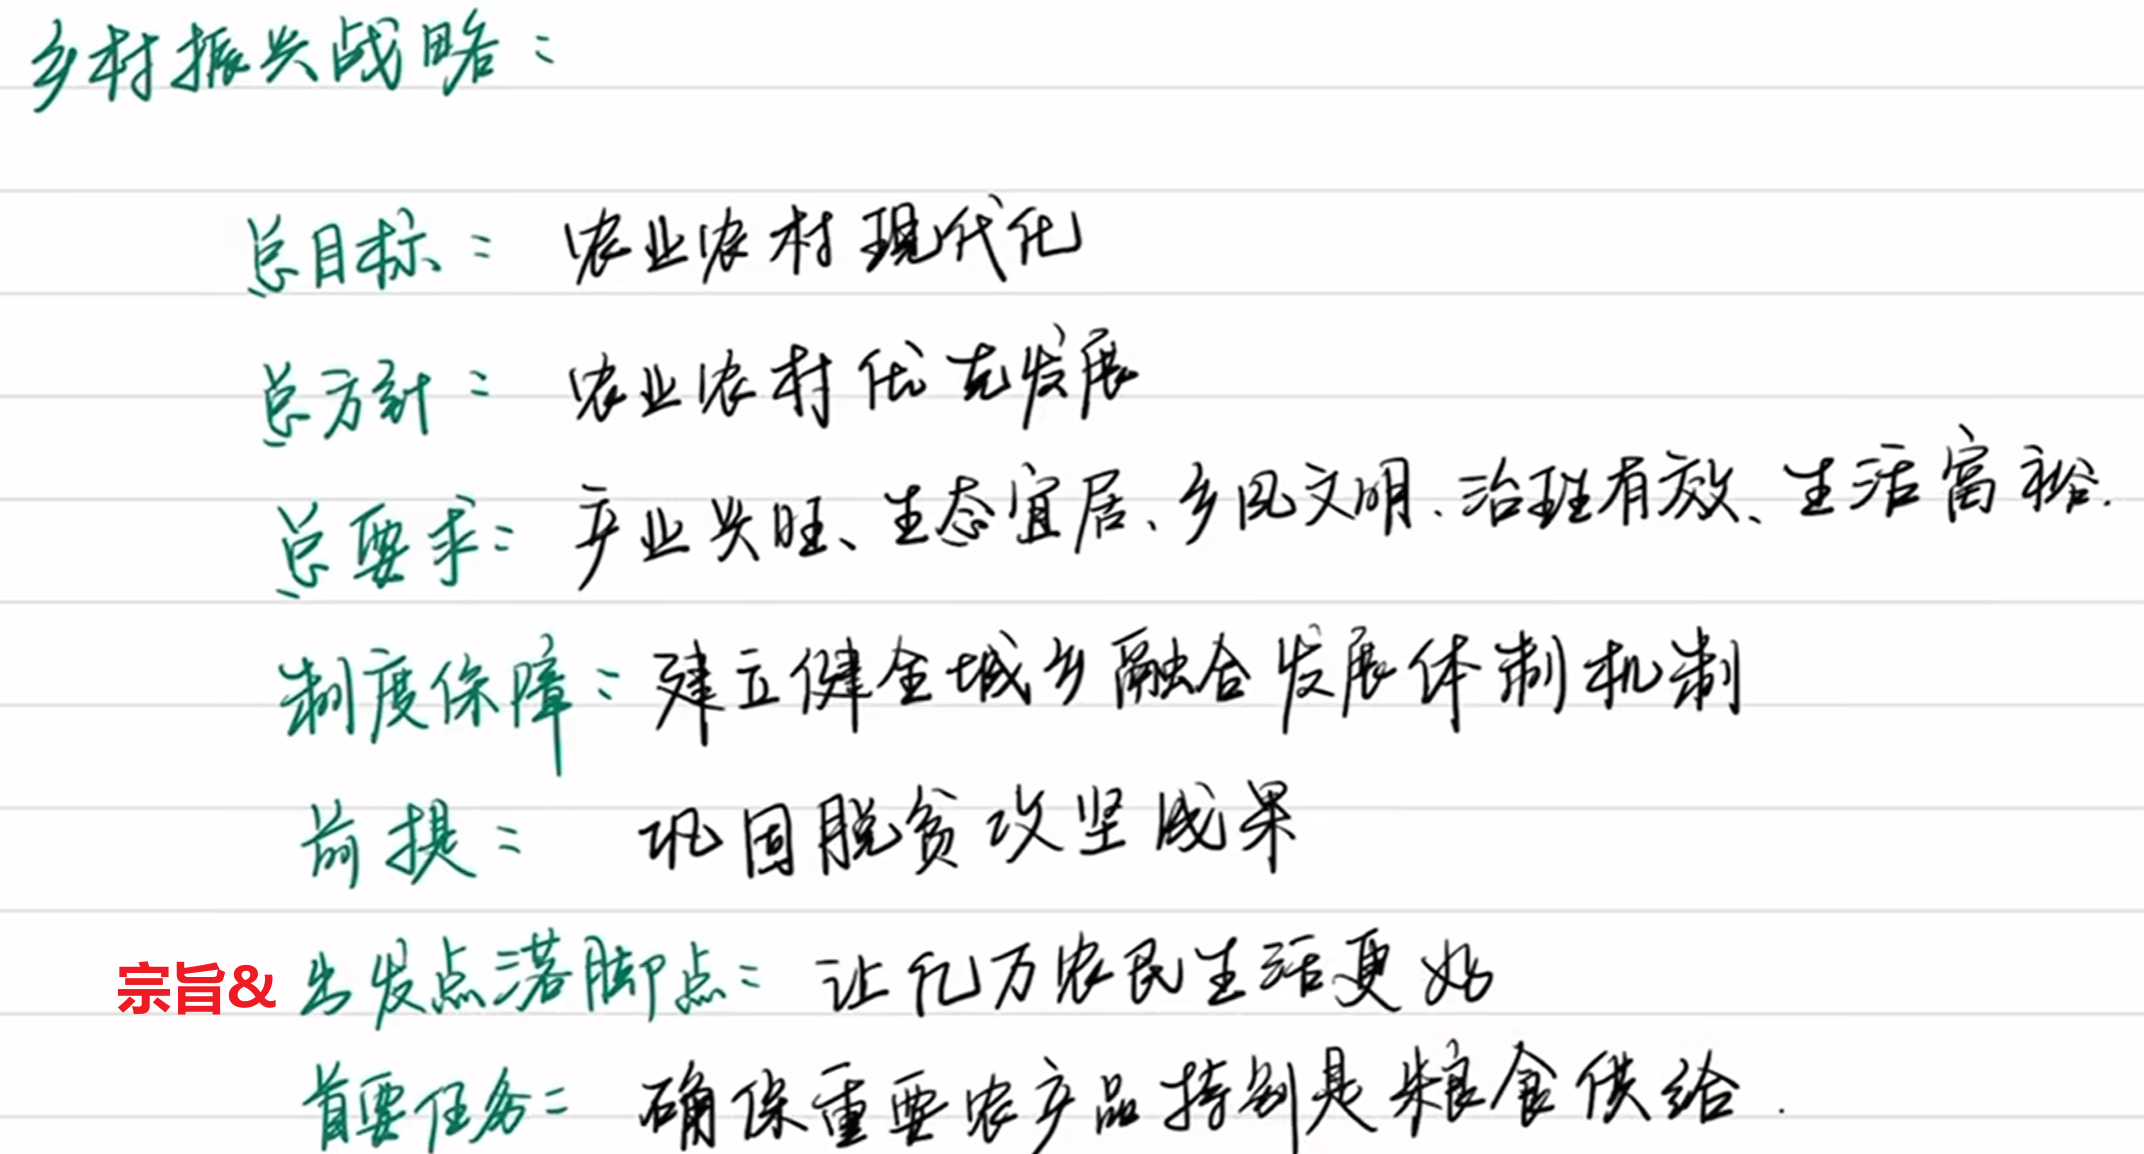 乡村振兴战略：
总目标：农业农村现代化
总方针：农业农村优先发展
总要求：产业兴旺、生态宜居、乡风文明、治理有效、生活富裕.
制度保障：建立健全城乡融合发展体制机制
前提：巩固脱贫攻坚成果
宗旨&出发点落脚点：让亿万农民生活更好
首要任务：确保重要农产品特别是粮食供给.